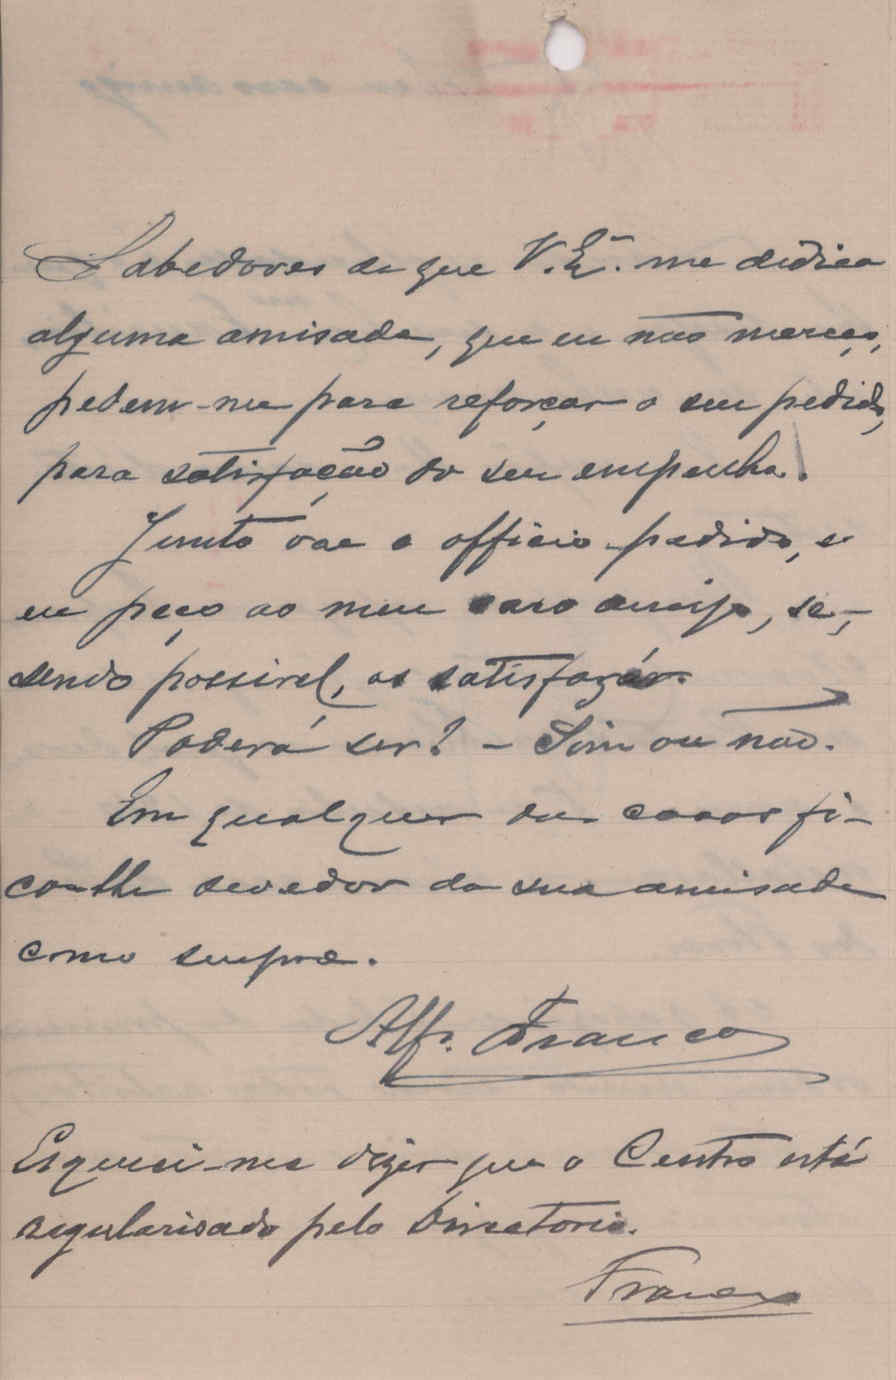 Sabedores de que V. Exª. me dedica
alguma amisade, que eu não mereço,
pedem-me para reforçar o seu pedido,
para satisfação do seu empenho.
Junto vae o officio-pedido, e
eu peço ao meu caro amigo, se,
sendo possivel, os satisfazer.
Poderá ser? – Sim ou não.
Em qualquer dos casos fi-
co-lhe devedor da sua amisade
como sempre.
Alf. Franco
Esqueci-me dizer que o Centro está
regularisado pelo Directorio.
Franco